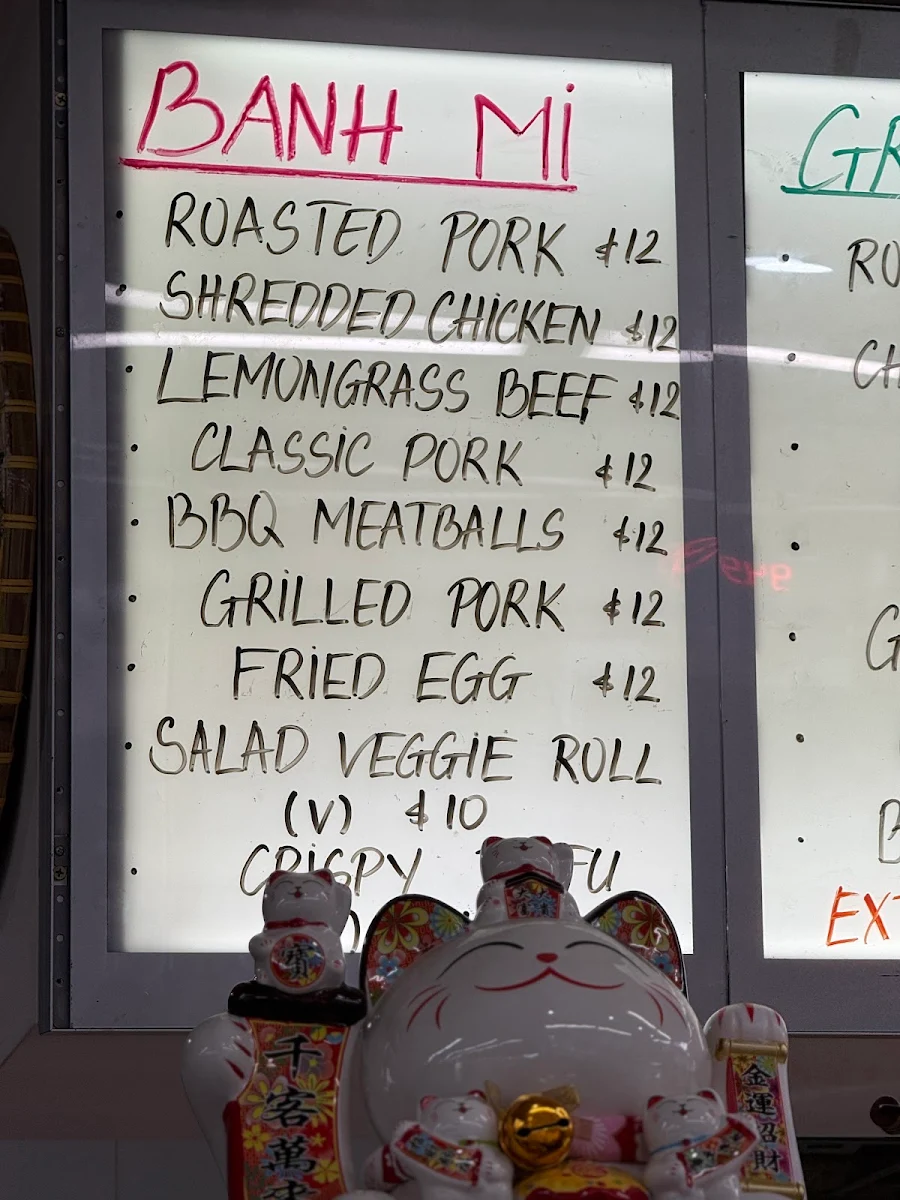 BANH Mi
• ROASTED PORK $12
• SHREDDED CHICKEN $12
• LEMONGRASS BEEF $12
• CLASSIC PORK $12
• BBQ MEATBALLS $12
• GRILLED PORK $12
• FRIED EGG $12
• SALAD VEGGIE ROLL
(V) $10
• CRISPY
GR
RO
CH
G
B
EXT
寶
千客萬
金運招財